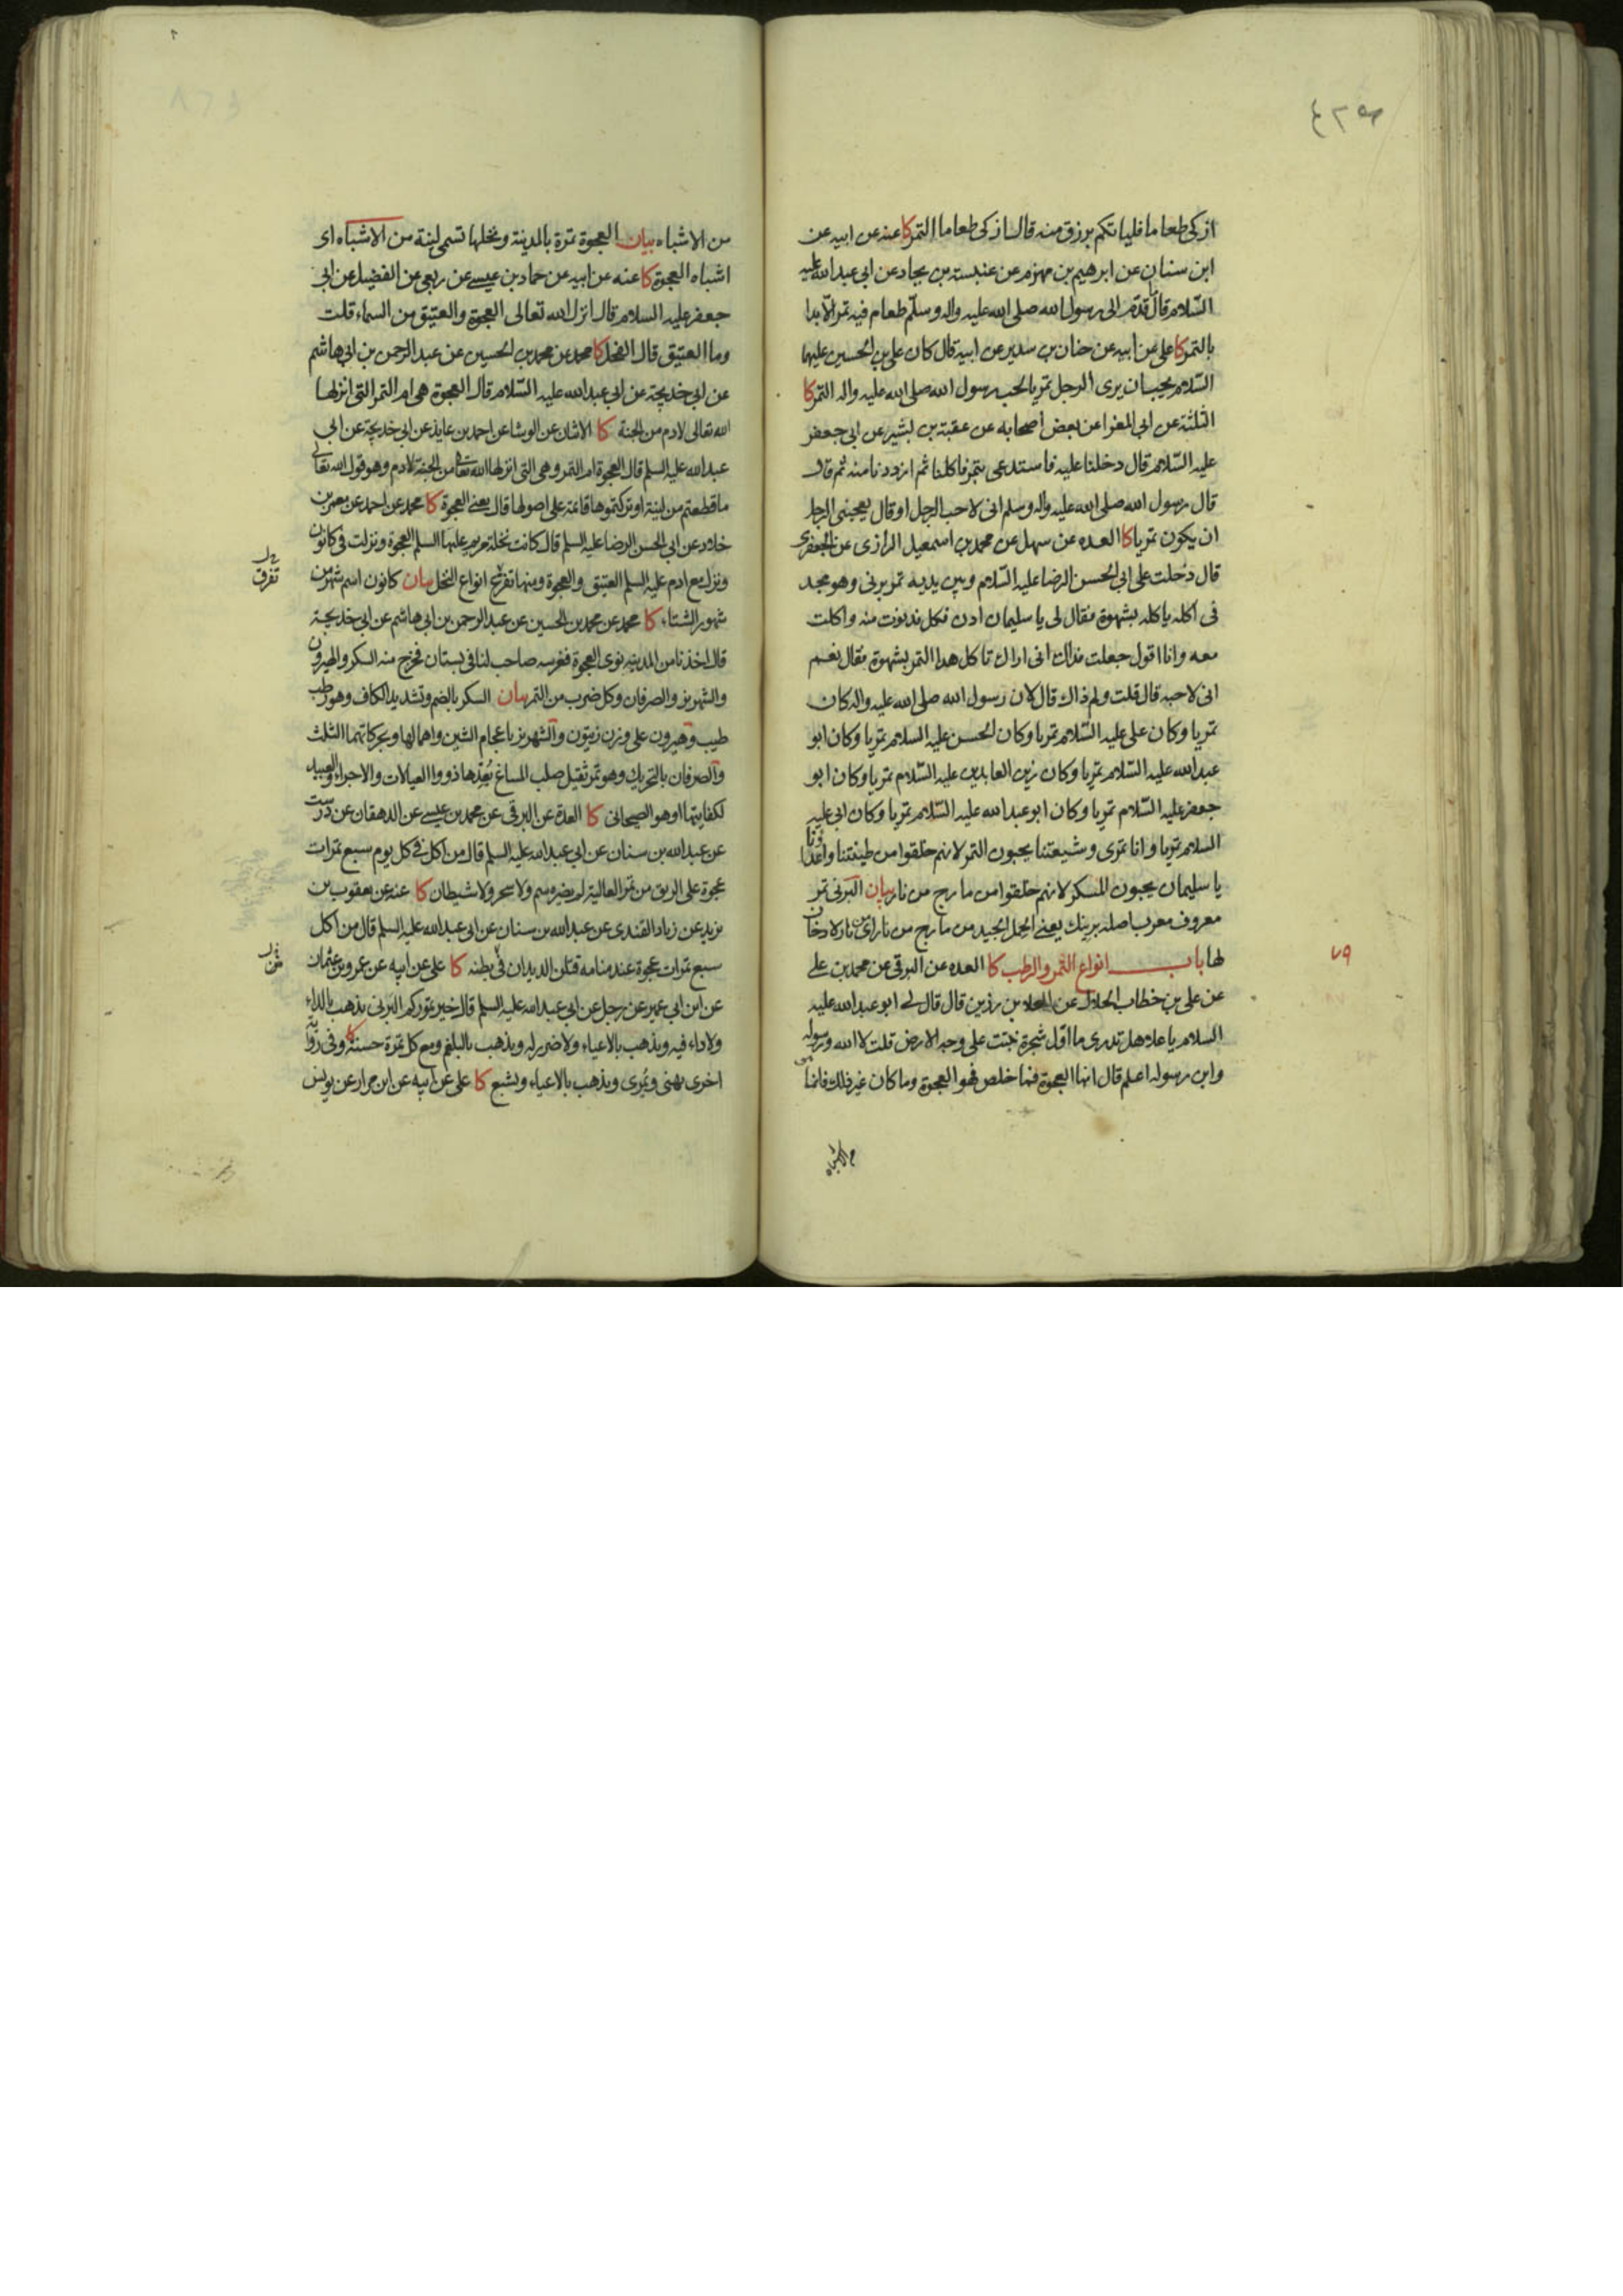 ٤٢٥
ازكى طعاما فلياتكم برزق منه قال ازكى طعاما التمر كا عنه عن ابيه عن
ابن سنان عن ابرهيم بن مهزم عن عنبسة بن بجاد عن ابي عبد الله عليه
السّلام قال ما قدّم الى رسول الله صلى الله عليه واله وسلّم طعام فيه تمر الّا بدا
بالتمر كا على عن ابيه عن حنان بن سدير عن ابيه قال كان على بن الحسين عليهما
السّلام يحب ان يرى الرجل تمريا لحب رسول الله صلى الله عليه واله التمر كا
الثلثة عن ابي المغرا عن بعض اصحابه عن عقبة بن بشير عن ابى جعفر
عليه السّلام قال دخلنا عليه فاستدعى بتمر فاكلنا ثم ازددنا منه ثم قال
قال رسول الله صلى الله عليه واله وسلم انى لاحب الرجل او قال يعجبنى الرجل
ان يكون تمريا كا العده عن سهل عن محمد بن اسمعيل الرازى عن الجعفرى
قال دخلت على ابى الحسن الرضا عليه السّلام وبين يديه تمر برنى وهو مجد
فى اكله ياكله بشهوة فقال لى يا سليمان ادن فكل فدنوت منه واكلت
معه وانا اقول جعلت فداك انى اراك تاكل هذا التمر بشهوة فقال نعم
انى لاحبه قال قلت ولم ذاك قال لان رسول الله صلى الله عليه واله كان
تمريا وكان على عليه السّلام تمريا وكان الحسن عليه السلام تمريا وكان ابو
عبد الله عليه السّلام تمريا وكان زين العابدين عليه السّلام تمريا وكان ابو
جعفر عليه السّلام تمريا وكان ابو عبد الله عليه السّلام تمريا وكان ابى عليه
السلام تمريا وانا تمرى وشيعتنا يحبون التمر لانهم خلقوا من طينتنا واعداؤنا
يا سليمان يحبون المسكر لانهم خلقوا من مارج من نار بيان البرنى تمر
معروف معرب اصله برنيك يعنى الحمل الجيد من مارج من نار اى من نار لا دخان
لها باب انواع التمر والرطب كا العده عن البرقى عن محمد بن على
٧٩
عن على بن خطاب الحلال عن العلاء بن رزين قال قال لى ابو عبد الله عليه
السلام يا علاء هل تدرى ما اوّل شجرة نبتت على وجه الارض قلت لا الله ورسوله
وابن رسوله اعلم قال انها العجوة فما خلص فهو العجوة وما كان غير ذلك فانما هى
من الاشباه
من الاشباه بيان العجوة تمرة بالمدينة ونخلها تسمى لينة من الاشباه اى
اشباه العجوة كا عنه عن ابيه عن حماد بن عيسى عن ربعى عن الفضيل عن ابى
جعفر عليه السلام قال انزل الله تعالى العجوة والعتيق من السماء قلت
وما العتيق قال الفحل كا محمد عن محمد بن الحسين عن عبد الرحمن بن ابى هاشم
عن ابى خديجة عن ابي عبد الله عليه السّلام قال العجوة هى ام التمر التى انزلها
الله تعالى لادم من الجنة كا الاثنان عن الوشا عن احمد بن عايذ عن ابى خديجة عن ابى
عبد الله عليه السلم قال العجوة ام التمر وهى التى انزلها الله تعالى من الجنة لادم وهو قول الله تعالى
ما قطعتم من لينة او تركتموها قائمة على اصولها قال يعنى العجوة كا محمد عن احمد عن معمر بن
خلاد عن ابى الحسن الرضا عليه السلم قال كانت نخلة مريم عليها السلم العجوة ونزلت فى كانون
ونزل مع ادم عليه السلم العتيق والعجوة ومنها تفرع انواع النخل بيان كانون اسم شهر من
تفرق
شهور الشتاء كا محمد عن محمد بن الحسين عن عبد الرحمن بن ابى هاشم عن ابى خديجة
قال اخذنا من المدينه نوى العجوة فغرسه صاحب لنا فى بستان فخرج منه السكر والهيرون
والشهريز والصرفان وكل ضرب من التمر بيان السكر بالضم وتشديد الكاف وهو رطب
طيب وهيرون على وزن زيتون والشهريز باعجام الشين واهمالها وبحركاتهما الثلث
والصرفان بالتحريك وهو تمر ثقيل صلب المساغ يُعِدّها ذووا العيالات والاجراء والعبيد
لكفايتها او هو الصيحانى كا العدة عن البرقى عن محمد بن عيسى عن الدهقان عن درست
عن عبد الله بن سنان عن ابى عبد الله عليه السلم قال من اكل فى كل يوم سبع تمرات
عجوة على الريق من تمر العالية لم يضره سم ولا سحر ولا شيطان كا عنه عن يعقوب بن
يزيد عن زياد القندى عن عبد الله بن سنان عن ابى عبد الله عليه السلم قال من اكل
سبع تمرات عجوة عند منامه قتلن الديدان فى بطنه كا على عن ابيه عن عمرو بن عثمان
عن ابن ابى عمير عن رجل عن ابى عبد الله عليه السلم قال خير تموركم البرنى يذهب بالداء
ولا داء فيه ويذهب بالاعياء ولا ضرر له ويذهب بالبلغم ومع كل تمرة حسنة كا وفى رواية
اخرى يهنى ويُمرى ويذهب بالاعياء ويشبع كا على عن ابيه عن ابن مرار عن يونس